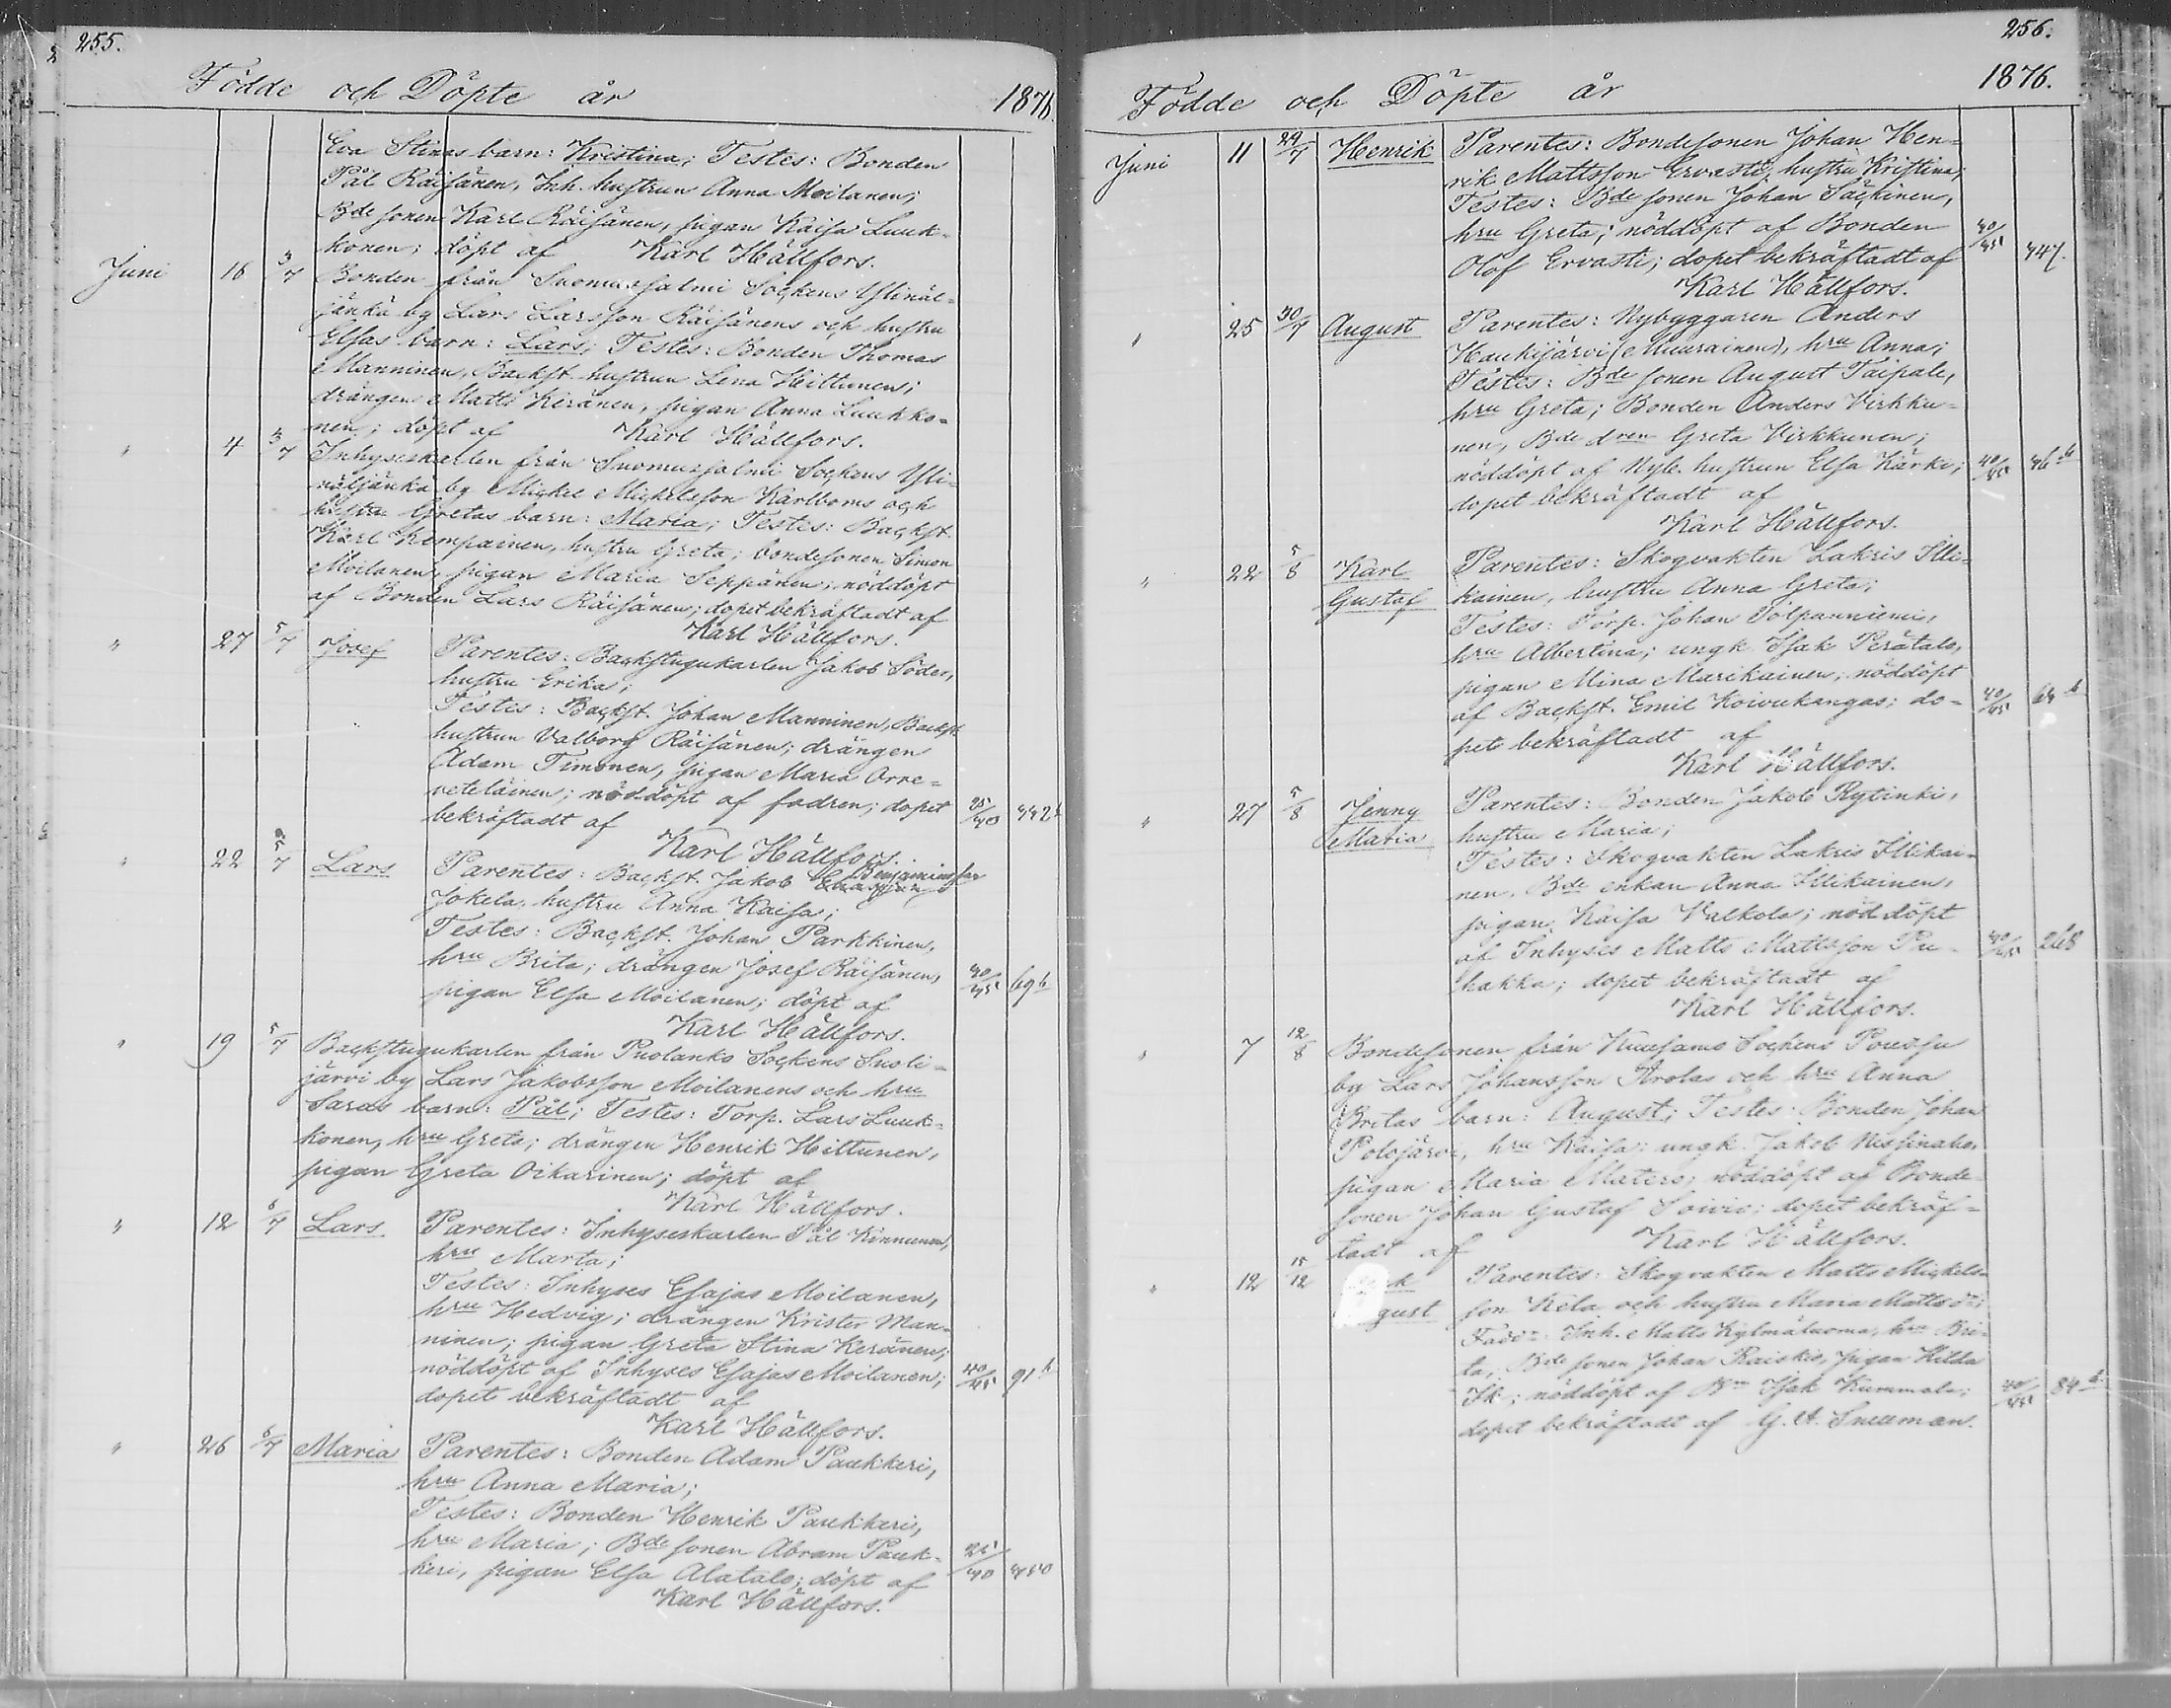 255.
Födde och Döpte år 1876.
Eva Stinas barn: Kristina; Testes: Bonden
Pål Räisänen, Inh. hustrun Anna Moilanen;
Bde sonen Karl Räisänen, pigan Kaisa Luuk-
konen; döpt af Karl Hällfors.
Juni 16 3/7 Bonden från Suomusjalmi Sockens Ylinäl-
jänkä by Lars Larsson Räisänens och hustru
Elsas barn: Lars; Testes: Bonden Thomas
Manninen, Backst. hustrun Lena Hiltunen;
drängen Matts Keränen, pigan Anna Luukko-
nen; döpt af Karl Hällfors.
" 4 3/7 Inhyseskarlen från Suomusjalmi Sockens Yli-
näljänkä by Mickel Mickelsson Karlboms och
hustru Gretas barn: Maria; Testes: Backst.
Karl Kempainen, hustru Greta; bondesonen Simon
Moilanen, pigan Maria Seppänen; nöddöpt
af Bonden Lars Räisänen; dopet bekräftadt af
Karl Hällfors.
" 27 5/7 Josef Parentes: Backstugukarlen Jakob Söder,
hustru Erika;
Testes: Backst. Johan Manninen, Backst.
hustrun Valborg Räisänen; drängen
Adam Timonen, pigan Maria Arre-
veteläinen; nöddöpt af fadren; dopet 25/40 442
bekräftadt af
Karl Hällfors.
" 22 5/7 Lars Parentes: Backst. Jakob Benjaminsson
Jokela, hustru Anna Kaisa;
Testes: Backst. Johan Parkkinen,
hru Brita; drängen Josef Räisänen, 40/45 69 b
pigan Elsa Moilanen; döpt af
Karl Hällfors.
" 19 5/7 Backstugukarlen från Puolanko Sockens Suoli-
järvi by Lars Jakobsson Moilanens och hru
Saras barn: Pål; Testes: Torp. Lars Luuk-
konen, hru Greta; drängen Henrik Hiltunen,
pigan Greta Oikarinen; döpt af
Karl Hällfors.
" 12 6/7 Lars Parentes: Inhyseskarlen Pål Kinnunen,
hru Marta;
Testes: Inhyses Esajas Moilanen,
hru Hedvig; drängen Krister Man-
ninen; pigan Greta Stina Keränen;
nöddöpt af Inhyses Esajas Moilanen; 40/45 91 b
dopet bekräftadt af
Karl Hällfors.
" 26 6/7 Maria Parentes: Bonden Adam Paukkeri,
hru Anna Maria;
Testes: Bonden Henrik Paukkeri,
hru Maria; Bde sonen Abram Pauk- 25/40 450
keri, pigan Elsa Alatalo; döpt af
Karl Hällfors.
256.
Födde och Döpte år 1876.
Juni 11 29/7 Henrik Parentes: Bondesonen Johan Hen-
rik Mattsson Ervasti, hustru Kristina;
Testes: Bde sonen Johan Säckinen,
hru Greta; nöddöpt af Bonden 40/45 447.
Olof Ervasti; dopet bekräftadt af
Karl Hällfors.
" 25 30/7 August Parentes: Nybyggaren Anders
Haukijärvi (Muurainen), hru Anna;
Testes: Bde sonen August Taipale,
hru Greta; Bonden Anders Virkku-
nen, Bde dren Greta Virkkunen;
nöddöpt af Nyb. hustrun Elsa Kärki; 40/45 46 b
dopet bekräftadt af
Karl Hällfors.
" 22 5/8 Karl Gustaf Parentes: Skogvakten Zakris Illi-
kainen, hustru Anna Greta;
Testes: Torp. Johan Polpanniemi,
hru Albertina; ungk. Isak Perätalo,
pigan Mina Marikainen; nöddöpt
af Backst. Emil Koivukangas; do- 40/45 64 b
pet bekräftadt af
Karl Hällfors.
" 27 5/8 Jenny Maria Parentes: Bonden Jakob Rytinki,
hustru Maria;
Testes: Skogvakten Zakris Illikai-
nen, Bde enkan Anna Illikainen,
pigan Kaisa Valkola; nöddöpt
af Inhyses Matts Mattsson Pu- 40/45 268
hakka; dopet bekräftadt af
Karl Hällfors.
" 7 12/8 Bondesonen från Kuusamo Sockens Poussu
by Lars Johansson Arolas och hru Anna
Britas barn: August; Testes: Bonden Johan
Polojärvi, hru Kaisa; ungk. Jakob Nissinaho,
pigan Maria Matero; nöddöpt af Bonde-
sonen Johan Gustaf Soivio; dopet bekräf-
tadt af Karl Hällfors.
" 12 15/12 gust Parentes: Skogvakten Matts Mickels-
son Kela och hustru Maria Mattsdr;
Faddr: Inh. Matts Kylmäluoma, hru Bri-
ta, Bde sonen Johan Raiskio, pigan Hilda
Ik; nöddöpt af Bn Isak Kummala; 40/45 84 b
dopet bekräftadt af G. A. Snellman.